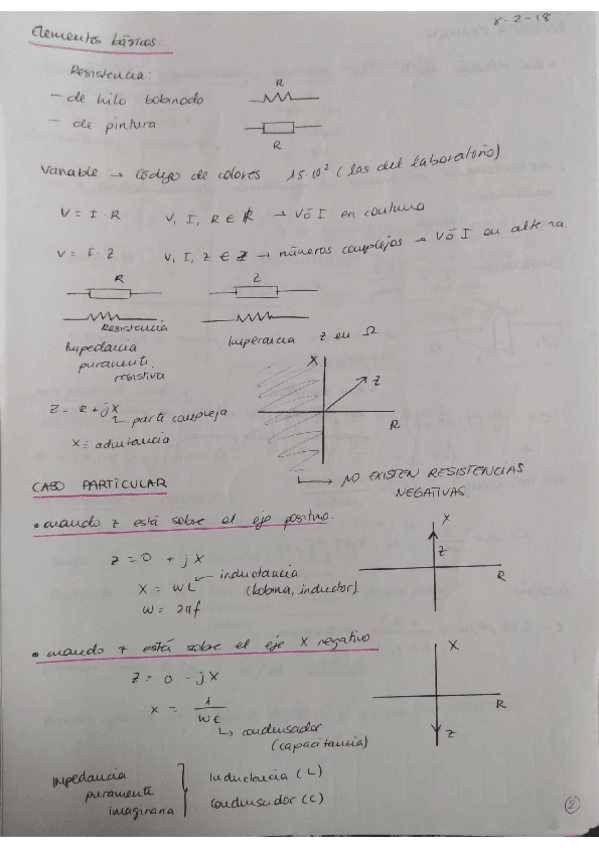 8-2-18
Elementos básicos:
Resistencia:
- de hilo bobinado
R
- de pintura
R
Variable → Código de colores 15·10² (las del laboratorio)
V = I · R V, I, R ∈ R → V ó I en continua
V = I · Z V, I, Z ∈ Z → números complejos → V ó I en alterna.
R Z
Resistencia
Impedancia Impedancia Z en Ω
puramente
resistiva
X
Z
R
Z = R + jX
↳ parte compleja
X = admitancia
↳ NO EXISTEN RESISTENCIAS
NEGATIVAS.
CASO PARTICULAR
• cuando z está sobre el eje positivo.
X
Z
R
Z = 0 + jX
X = WL ← inductancia
(bobina, inductor)
W = 2πf
• cuando z está sobre el eje X negativo
X
R
Z
Z = 0 - jX
X = 1/WC
↳ condensador
(capacitancia)
Impedancia
puramente
imaginaria
Inductancia (L)
Condensador (C)
2